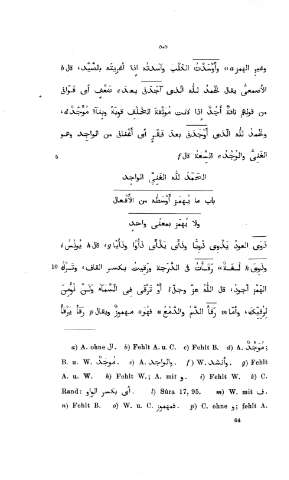 وغير الهمز a» وأَوْسَدْتُ الكلب وآسدته اذا أغريته بالصَّيْد، قال b
الأصمعى يقال الحمد لله الذى آجدنى بعد ضعف أى قوّانى
من قولهم ناقة أُجُد اذا كانت موثقة الخلق قوية وبناء موجد d،
والحمد لله الذى أوجدنى بعد فقر أى أغنانى من الواجد وهو
الغنىّ والوُجْد e السعة قال f
5
الحمد لله الغنى الواجد
باب ما يهمز أوسطه من الأفعال
ولا يهمز بمعنى واحد
ذوى العود يذوى ذويًّا وذأى يذأى ذأوًا وذأيًا g قال h يونس i
وذوى k لغة» رقأت فى الدرجة ورقيت بكسر القاف، وترك
10
الهمز أجود، قال الله عزّ وجلّ l أو ترقى فى السماء ولن نؤمن
لرقيّك، وأمّا m رقأ الدم والدمع n فهو o مهموز ويقال p رقأ يرقأ
a) A. ohne ال. b) Fehlt A. u. C. c) Fehlt B. d) A. مُوَجَّدٌ;
B. u. W. مُوجَدٌ. e) A. والواجد. f) W. وأنشد. g) Fehlt
A. u. W. h) Fehlt W.; A. mit و. i) Fehlt W. k) C.
Rand: أى بكسر الواو. l) Sûra 17, 95. m) W. mit ف.
n) Fehlt B. o) W. u. C. فمهموز. p) C. ohne و; fehlt A.